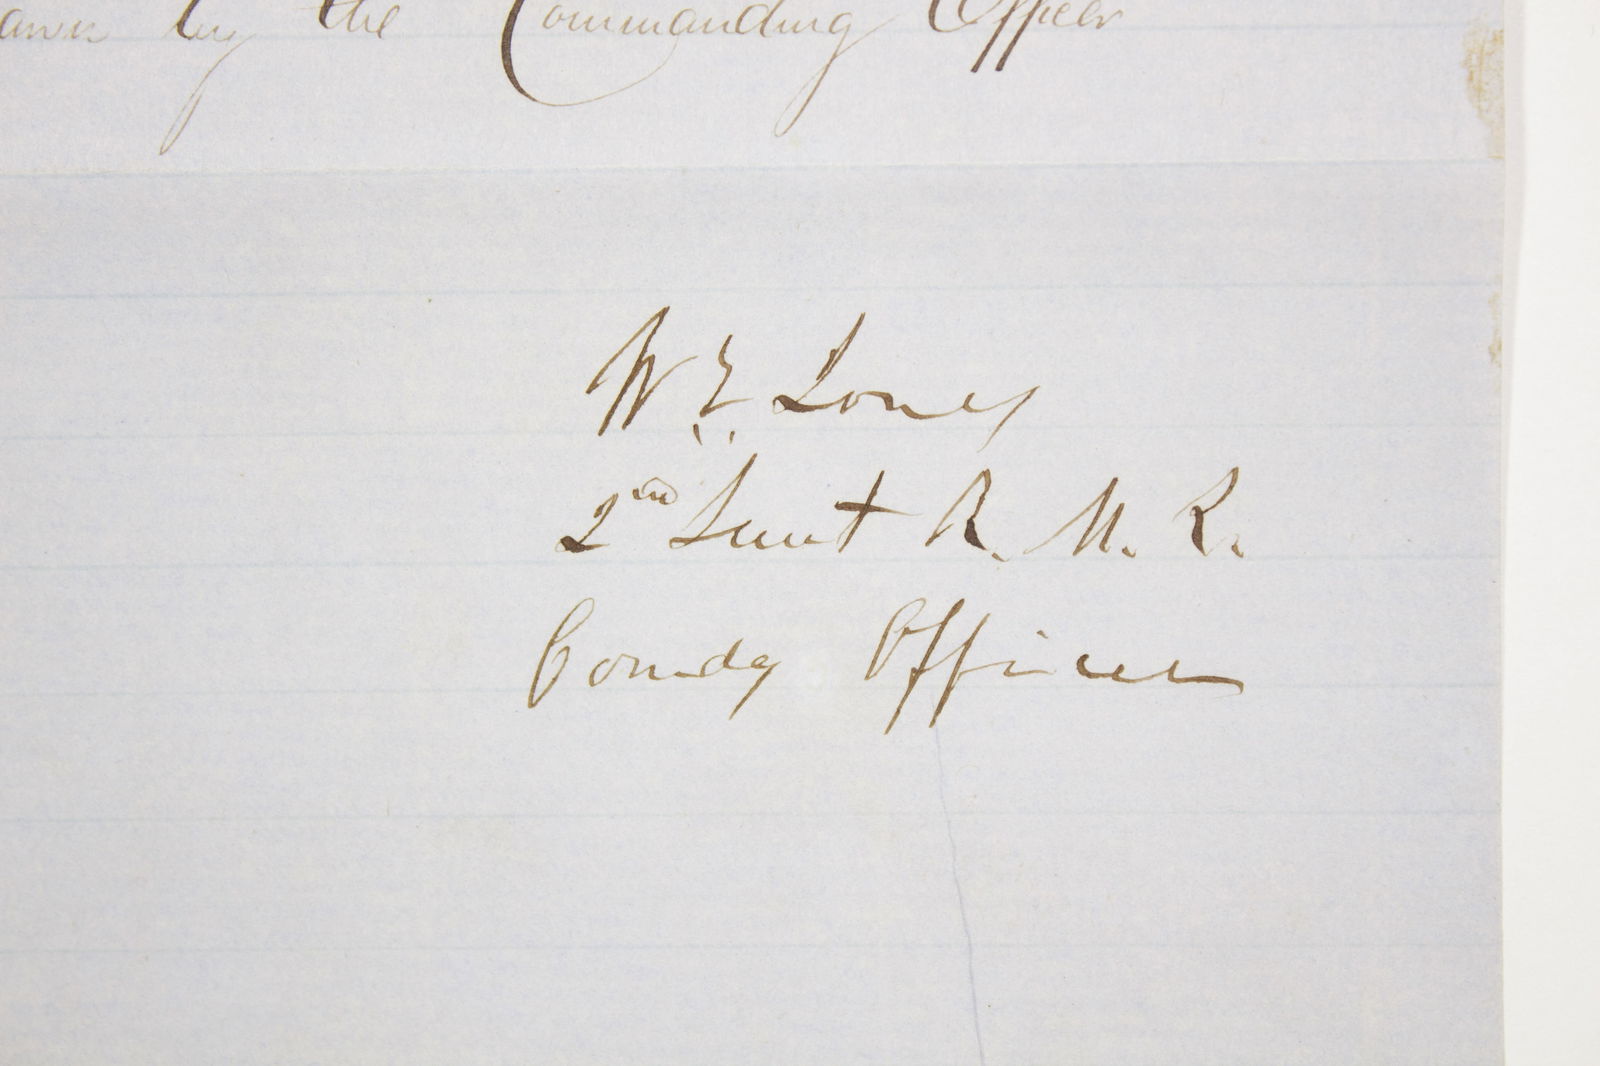 by the Commanding Officer
W. E. Jones
2nd Lieut R. M. R.
Comdg Officer